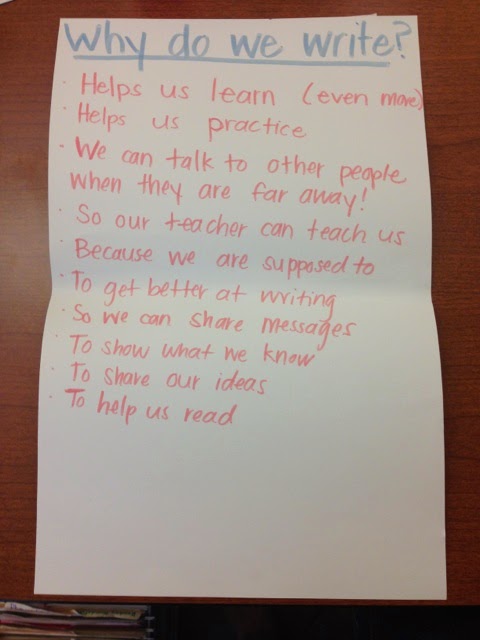 Why do we write?
· Helps us learn (even more)
· Helps us practice
· We can talk to other people
when they are far away!
· So our teacher can teach us
· Because we are supposed to
· To get better at writing
· So we can share messages
· To show what we know
· To share our ideas
· To help us read